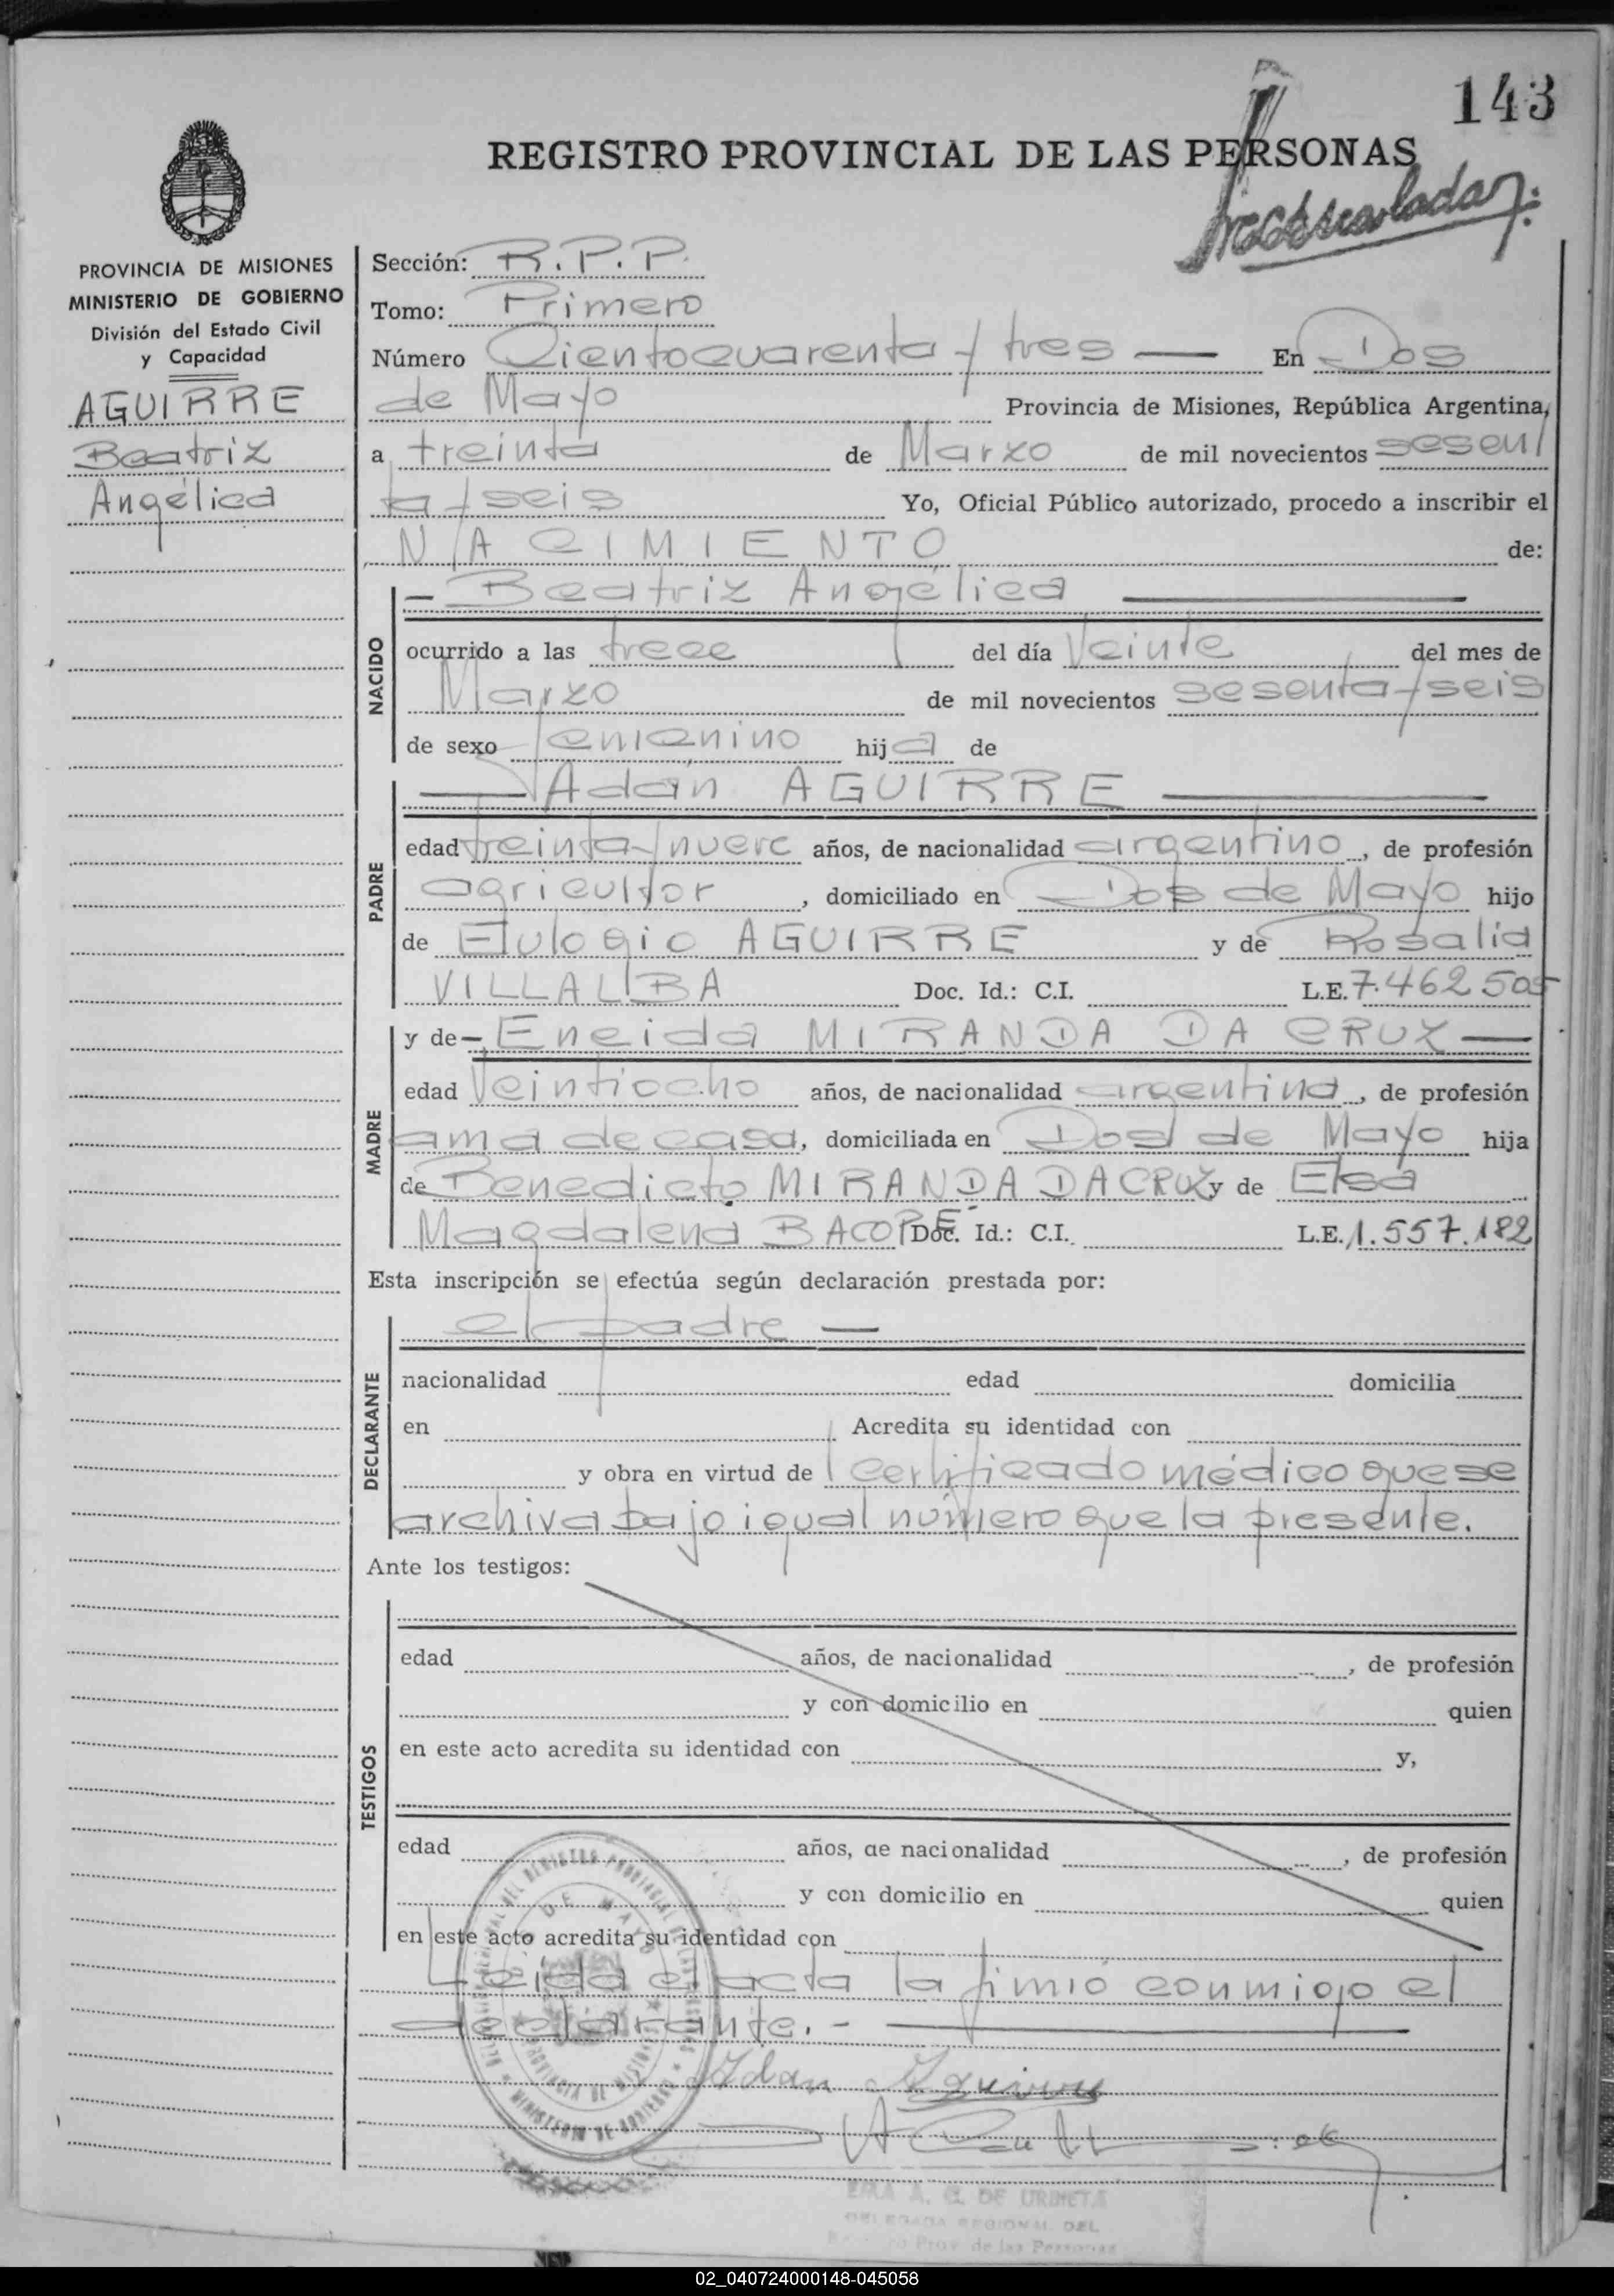 143
REGISTRO PROVINCIAL DE LAS PERSONAS
PROVINCIA DE MISIONES
MINISTERIO DE GOBIERNO
División del Estado Civil
y Capacidad
AGUIRRE
Beatriz
Angélica
Sección: R.P.P.
Tomo: Primero
Número Cientocuarenta y tres — En Dos
de Mayo Provincia de Misiones, República Argentina,
a treinta de Marzo de mil novecientos sesen/
ta y seis Yo, Oficial Público autorizado, procedo a inscribir el
NACIMIENTO de:
NACIDO
— Beatriz Angélica —
ocurrido a las trece del día Veinte del mes de
Marzo de mil novecientos sesenta y seis
de sexo femenino hija de
PADRE
— Adán AGUIRRE —
edad treinta y nueve años, de nacionalidad argentino, de profesión
agricultor, domiciliado en Dos de Mayo hijo
de Eulogio AGUIRRE y de Rosalia
VILLALBA Doc. Id.: C.I. L.E. 7.462505
MADRE
y de — Eneida MIRANDA DA CRUZ —
edad Veintiocho años, de nacionalidad argentina, de profesión
ama de casa, domiciliada en Dos de Mayo hija
de Benedicto MIRANDA DA CRUZ y de Elsa
Magdalena Doc. Id.: C.I. L.E. 1.557.182
Esta inscripción se efectúa según declaración prestada por:
DECLARANTE
el padre —
nacionalidad edad domicilia
en Acredita su identidad con
y obra en virtud de certificado médico que se
archiva bajo igual número que la presente.
Ante los testigos:
TESTIGOS
edad años, de nacionalidad , de profesión
y con domicilio en quien
en este acto acredita su identidad con y,
edad años, de nacionalidad , de profesión
y con domicilio en quien
en este acto acredita su identidad con
Leída el acta la firmó conmigo el
declarante. - —
Adan Aguirre
DE MAYO
MINISTERIO DE GOBIERNO
PROVINCIA DE MISIONES
EMA A. G. DE URRIETA
DELEGADA REGIONAL DEL
Prov. de las Personas
02_040724000148-045058